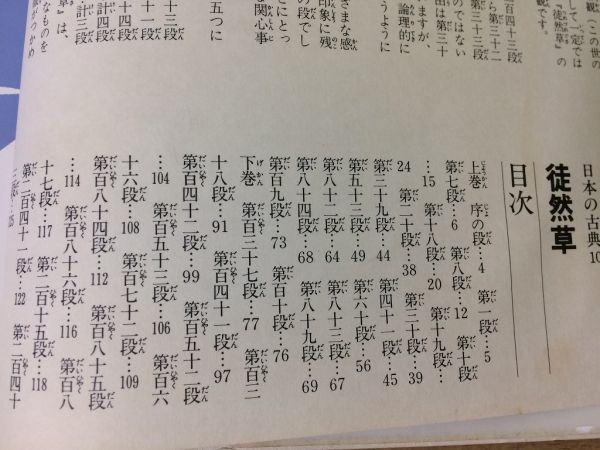 観（この世の
して、一定では
『徒然草』の
観です。
百四十三段
ら第三十二
第三十三段
のではない
由は第三十
ますが、
論理的に
うように
ざまな感
印象に残
の段でし
とにとっ
関心事
五つに
十三段
十一段
計十四段
計三段
草』は、
なものを
がつかめ
日本の古典10
徒然草
目次
上巻 序の段…4 第一段…5
第七段…6 第八段…12 第十段
…15 第十八段…20 第十九段…
24 第二十段…38 第三十段…39
第三十九段…44 第四十一段…45
第五十三段…49 第六十段…56
第八十二段…64 第八十三段…67
第八十四段…68 第八十九段…69
第百九段…73 第百十段…76
下巻 第百三十七段…77 第百三
十八段…91 第百四十一段…97
第百四十二段…99 第百五十二段
…104 第百五十三段…106 第百六
十六段…108 第百七十二段…109
第百八十四段…112 第百八十五段
…114 第百八十六段…116 第百八
十七段…117 第二百十五段…118
第二百四十一段…122 第二百四十
三段…125